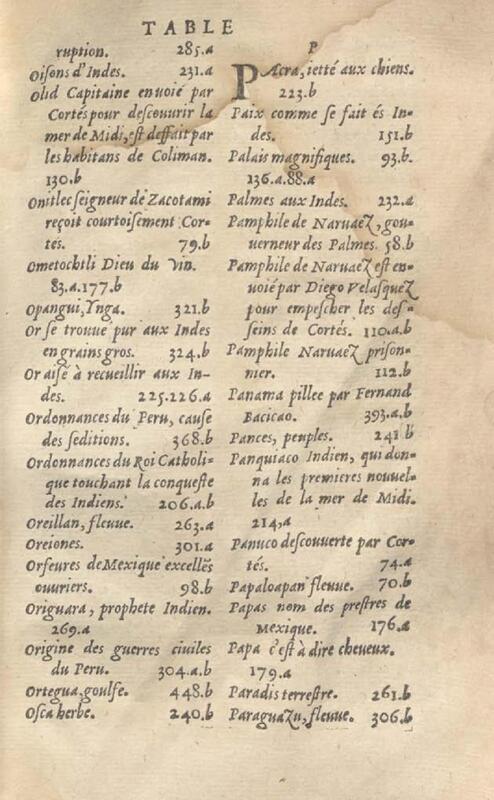 TABLE
ruption. 285.a
Oisons d'Indes. 231.a
Olid Capitaine enuoié par
Cortés pour descouurir la
mer de Midi, est deffait par
les habitans de Coliman.
130.b
Onitlec seigneur de Zacotami
reçoit courtoisement Cor-
tés. 79.b
Ometochili Dieu du vin.
83.a.177.b
Opangui, Ynga. 321.b
Or se trouue pur aux Indes
en grains gros. 324.b
Or aisé à recueillir aux In-
des. 225.226.a
Ordonnances du Peru, cause
des seditions. 368.b
Ordonnances du Roi Catholi-
que touchant la conqueste
des Indiens. 206.a.b
Oreillan, fleuue. 263.a
Oreiones. 301.a
Orfeures de Mexique excellẽs
ouuriers. 98.b
Origuara, prophete Indien.
269.a
Origine des guerres ciuiles
du Peru. 304.a.b
Ortegua, goulfe. 448.b
Osca herbe. 240.b
P
PAcra, ietté aux chiens.
223.b
Paix comme se fait és In-
des. 151.b
Palais magnifiques. 93.b.
136.a.88.a
Palmes aux Indes. 232.a
Pamphile de Naruaez, gou-
uerneur des Palmes. 58.b
Pamphile de Naruaez est en-
uoié par Diego Velasquez
pour empescher les des-
seins de Cortés. 110.a.b
Pamphile Naruaez prison-
nier. 112.b
Panama pillee par Fernand
Bacicao. 393.a.b
Pances, peuples. 241 b
Panquiaco Indien, qui don-
na les premieres nouuel-
les de la mer de Midi.
214,a
Panuco descouuerte par Cor-
tés. 74.a
Papaloapan fleuue. 70.b
Papas nom des prestres de
Mexique. 176.a
Papa c'est à dire cheueux.
179.a
Paradis terrestre. 261.b
Paraguazu, fleuue. 306.b